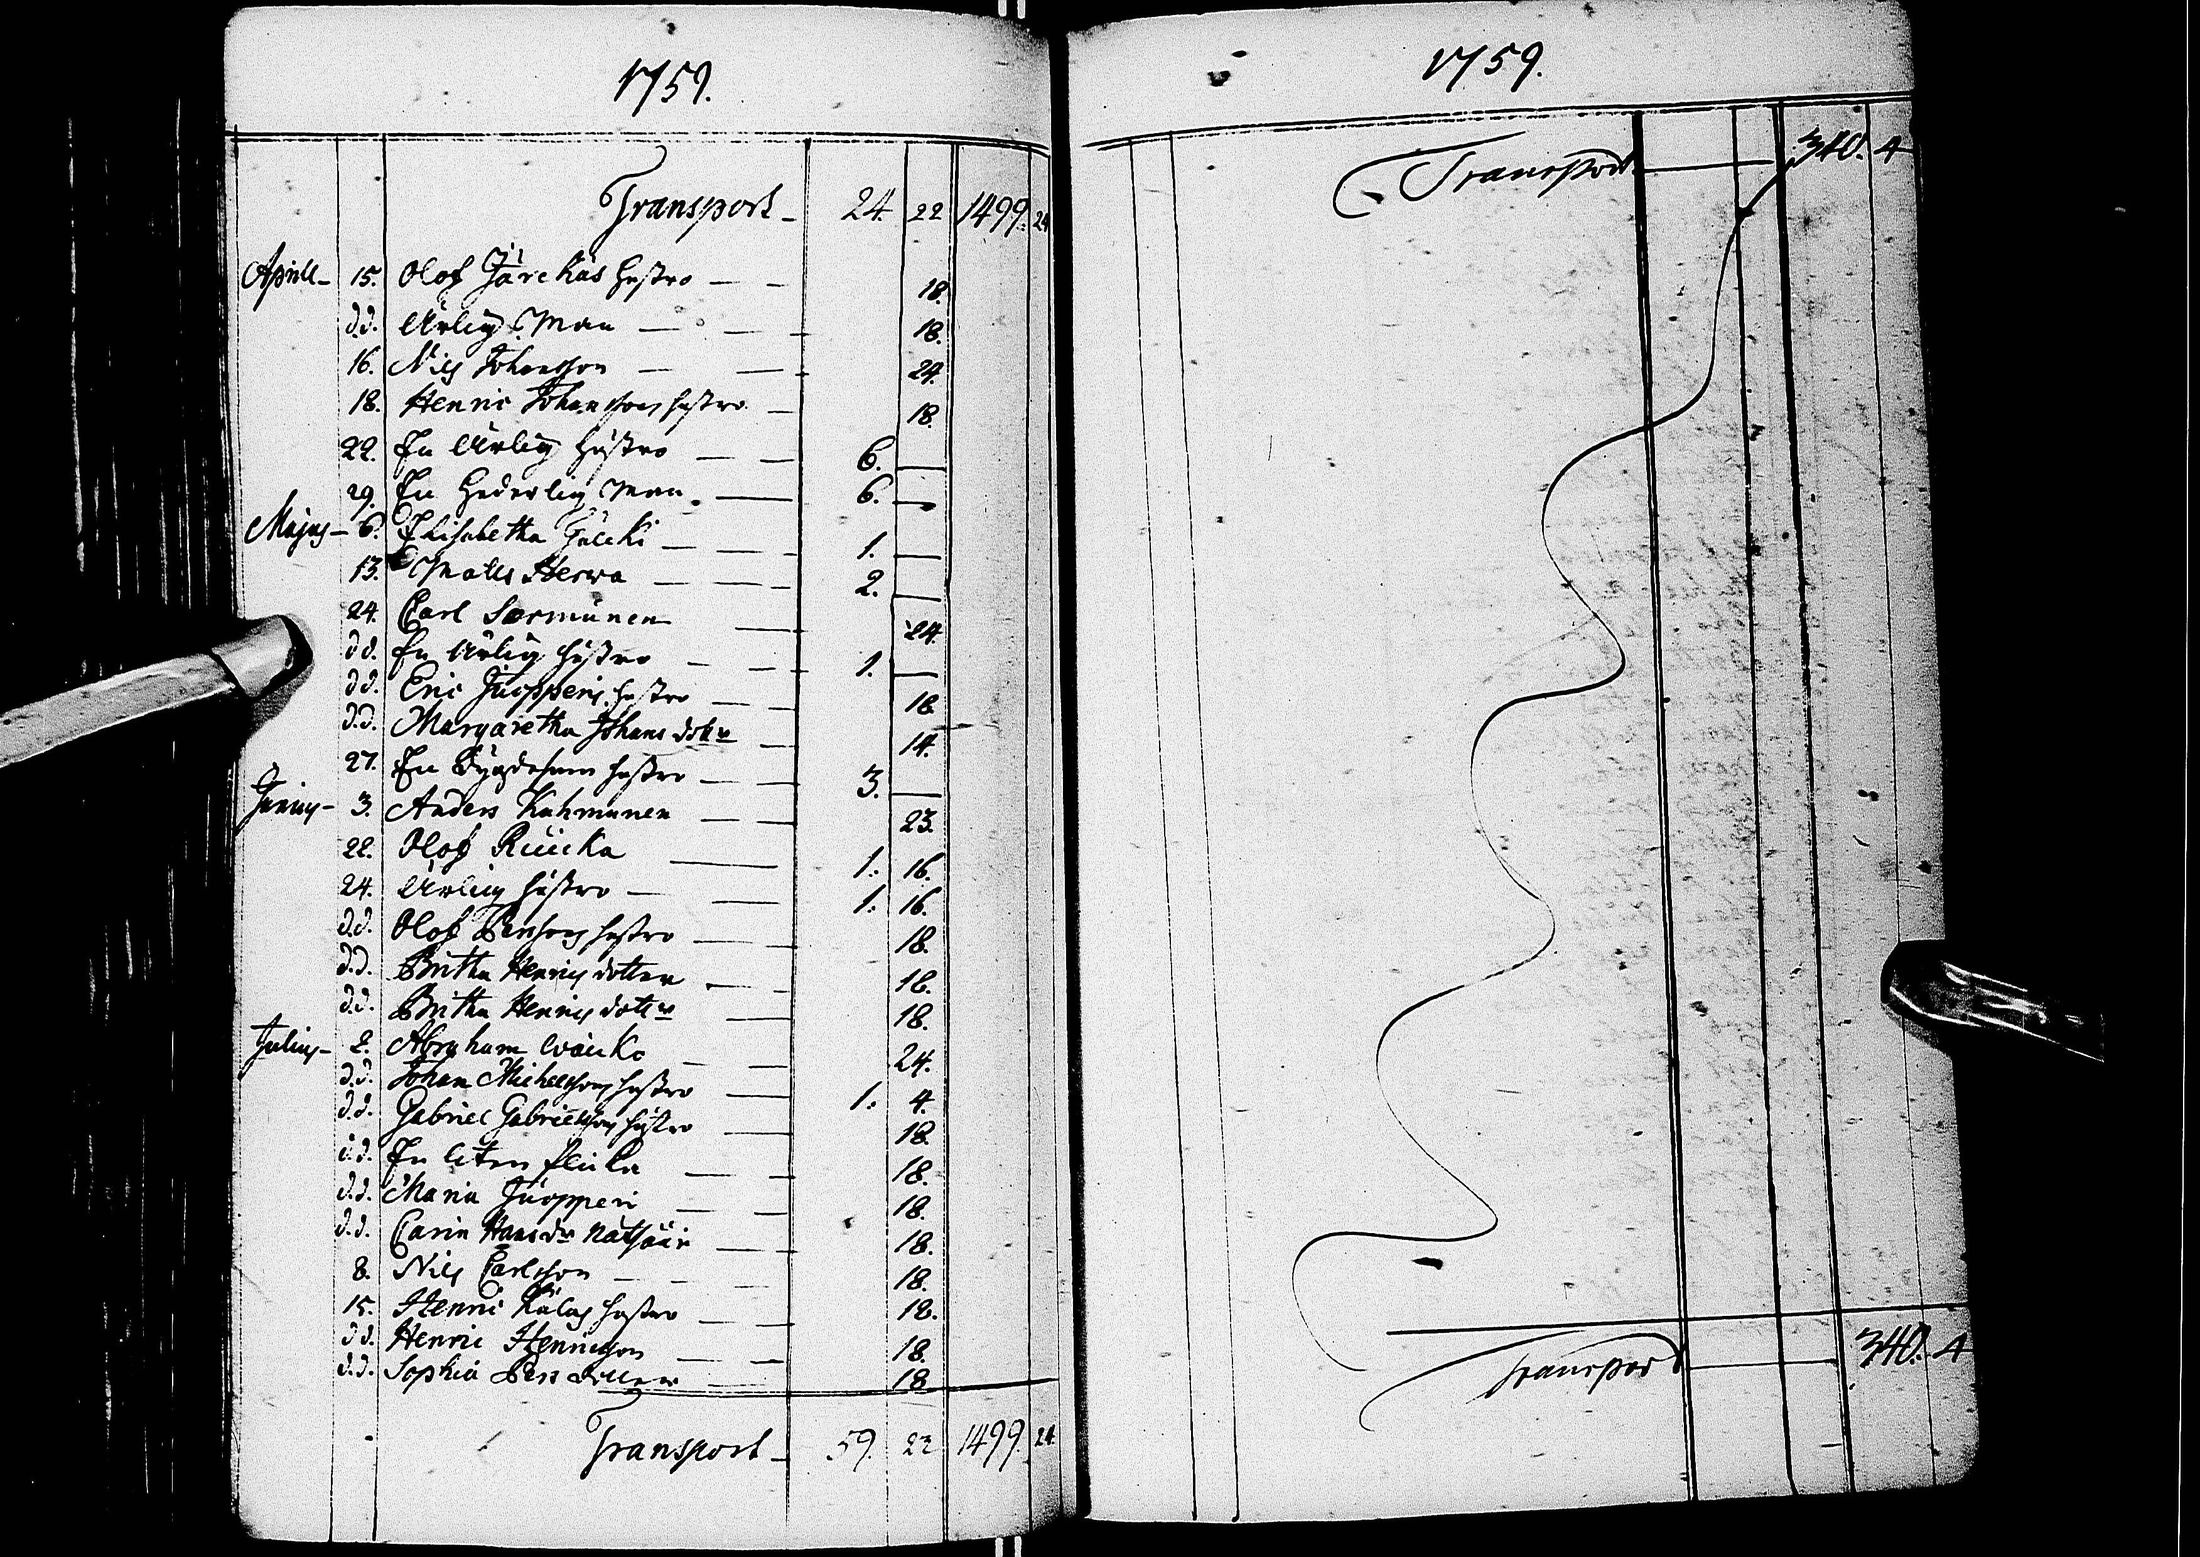 1759.
Transport - 24. 22 1499. 24
Aprill - 15. Olof Järckäs Hustro - - 18.
d.d. Ärlig Man - - 18.
16. Nils Johansson - - 24.
18. Henric Johanssons hustro - 18.
22. En Ärlig Hustro - - 6. -
29. En Hederlig Man - 6. -
Majus - 6. Elisabetha - - 1. -
13. Matts Herva - - 2. -
24. Carl Sormunen - 24.
d.d. En Ärlig Hustro - - 1. -
d.d. Eric Juopperis hustro - - 18.
d.d. Margaretha Johans dotter - 14.
27. En hustro - - 3. -
Junius - 3. Anders Kuhmunen - - 23.
22. Olof - 1. 16.
24. Ärlig hustro - - 1. 16.
d.d. Olof Persons hustro - - 18.
d.d. Britha Henrics dotter - - 18.
d.d. Britha Henrics dotter - 18.
Julius - 2. Abraham - - 24.
d.d. Johan Michelssons hustro - 1. 4.
d.d. Gabriel Gabrielssons hustro - 18.
d.d. En liten flicka - - 18.
d.d. Maria Juopperi - - 18.
d.d. Carin Hans dr - 18.
8. Nils Carlsson - - 18.
15. Henric hustro - - 18.
d.d. Henric Henricsson - - 18.
d.d. Sophia Pers dotter - 18
Transport - 59. 22 1499. 24
1759.
Transport - 340. 4
Transport - 340. 4